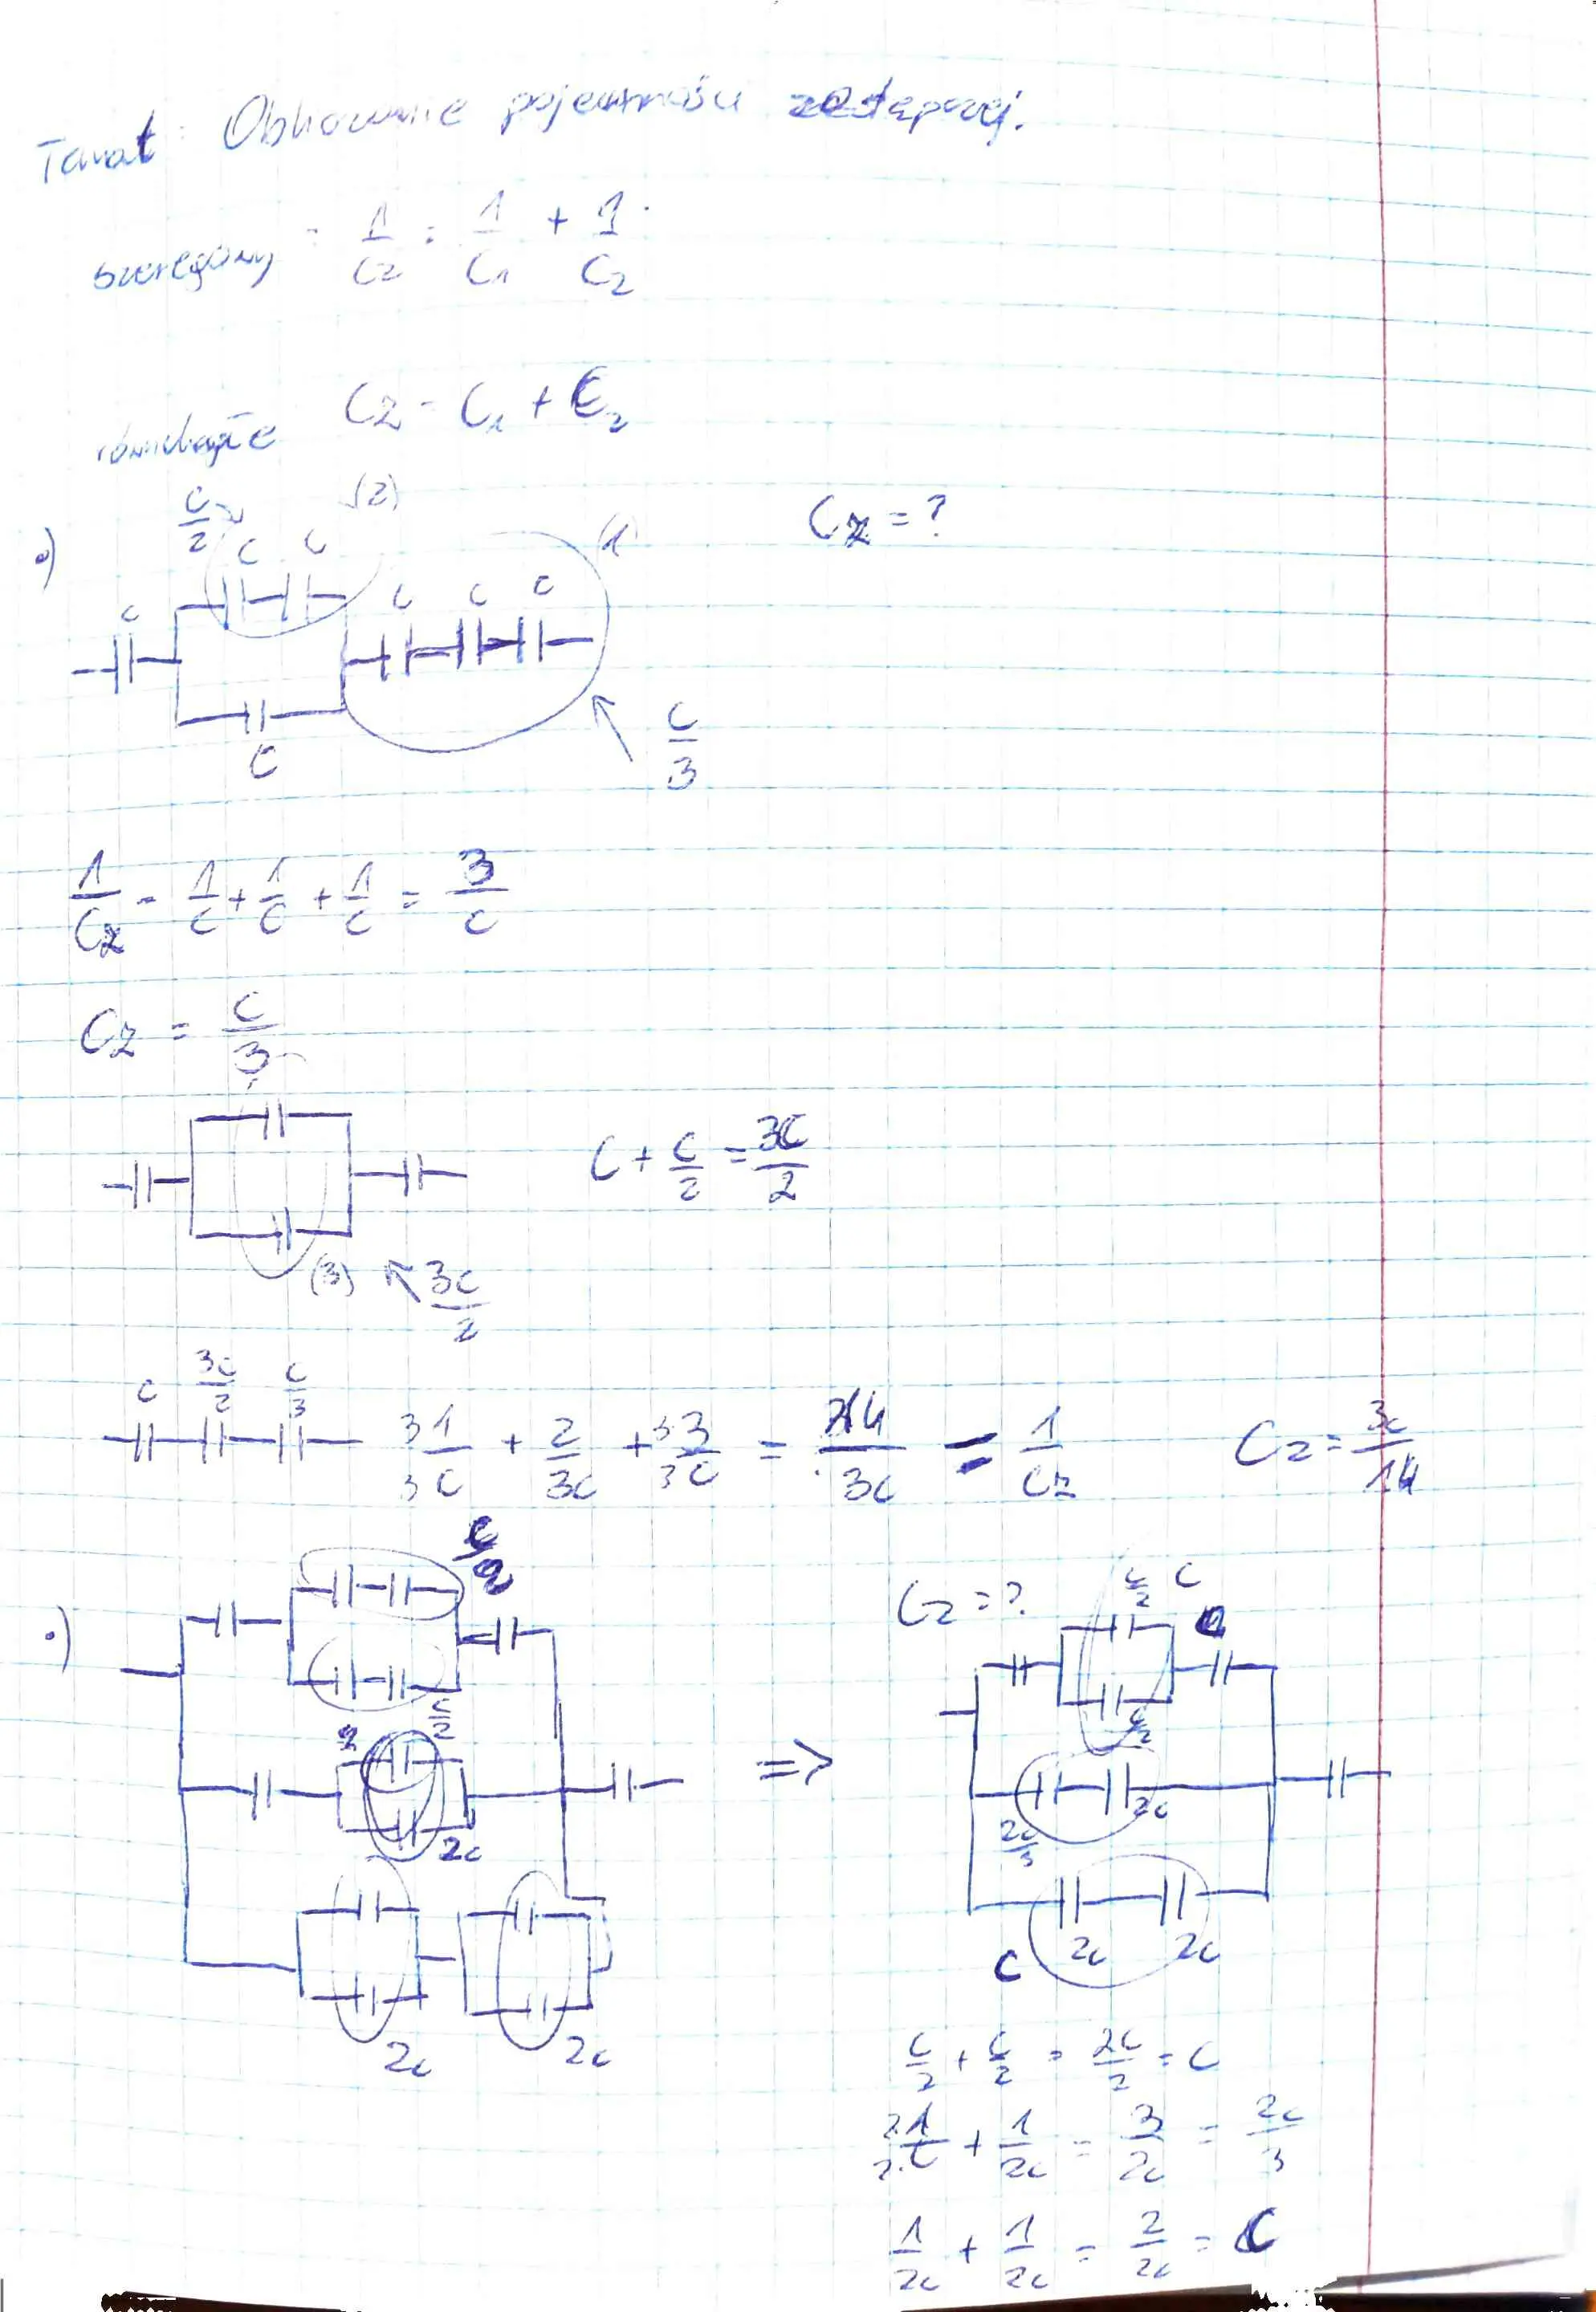 Temat: Obliczanie pojemności zastępczej.
szeregowy : 1/Cz = 1/C1 + 1/C2
równoległe Cz = C1 + C2
C/2 (2)
•) C C (1) Cz = ?
C C C C
C
C/3
1/Cz = 1/C + 1/C + 1/C = 3/C
Cz = C/3
C + C/2 = 3C/2
(3) 3C/2
C 3C/2 C/3
3 1/3 C + 2/3C + 3 3/3 C = 14/3C = 1/Cz Cz = 3C/14
C/2
•) Cz = ? C/2 C
C
C/2 C/2
2 => 2C
2C 2C/3
C 2C 2C
2C 2C
C/2 + C/2 = 2C/2 = C
2·1/2·C + 1/2C = 3/2C = 2C/3
1/2C + 1/2C = 2/2C = C